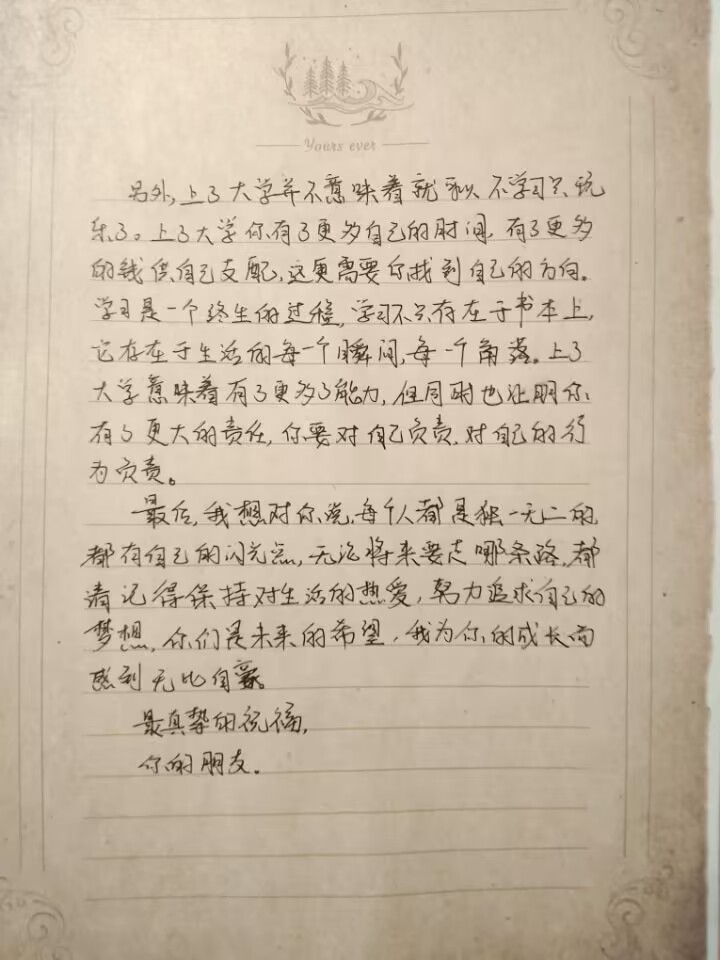 Yours ever
另外,上了大学并不意味着就可以不学习只玩
乐了。上了大学你有了更多自己的时间,有了更多
的钱供自己支配,这更需要你找到自己的方向。
学习是一个终生的过程,学习不只存在于书本上,
它存在于生活的每一个瞬间,每一个角落。上了
大学意味着有了更多了能力,但同时也证明你
有了更大的责任,你要对自己负责,对自己的行
为负责。
最后,我想对你说,每个人都是独一无二的,
都有自己的闪光点,无论将来要走哪条路,都
请记得保持对生活的热爱,努力追求自己的
梦想,你们是未来的希望,我为你的成长而
感到无比自豪。
最真挚的祝福,
你的朋友。